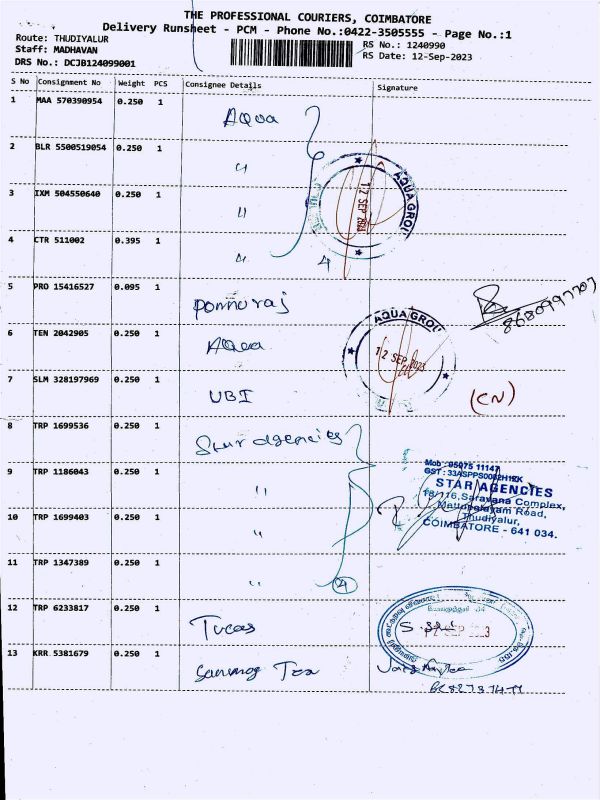 THE PROFESSIONAL COURIERS, COIMBATORE
Delivery Runsheet - PCM - Phone No.:0422-3505555 - Page No.:1
Route: THUDIYALUR
RS No.: 1240990
Staff: MADHAVAN
RS Date: 12-Sep-2023
DRS No.: DCJB124099001
S No Consignment No Weight PCS Consignee Details Signature
1 MAA 570390954 0.250 1 Aqua
2 BLR 5500519054 0.250 1 "
3 IXM 504550640 0.250 1 "
AQUA GROU
12 SEP 2023
4 CTR 511002 0.395 1 "
4
5 PRO 15416527 0.095 1 Ponnuraj
6 TEN 2042905 0.250 1 Aqua
AQUA GROU
12 SEP 2023
7 SLM 328197969 0.250 1 UBI
(CN)
8 TRP 1699536 0.250 1 Star agencies
9 TRP 1186043 0.250 1 "
Mob : 95975 11147
STAR AGENCIES
18/116, Saravana Complex,
Mettupalayam Road,
Thudiyalur,
COIMBATORE - 641 034.
10 TRP 1699403 0.250 1 "
11 TRP 1347389 0.250 1 "
4
12 TRP 6233817 0.250 1 Tucas
12 SEP 2023
13 KRR 5381679 0.250 1 Tex